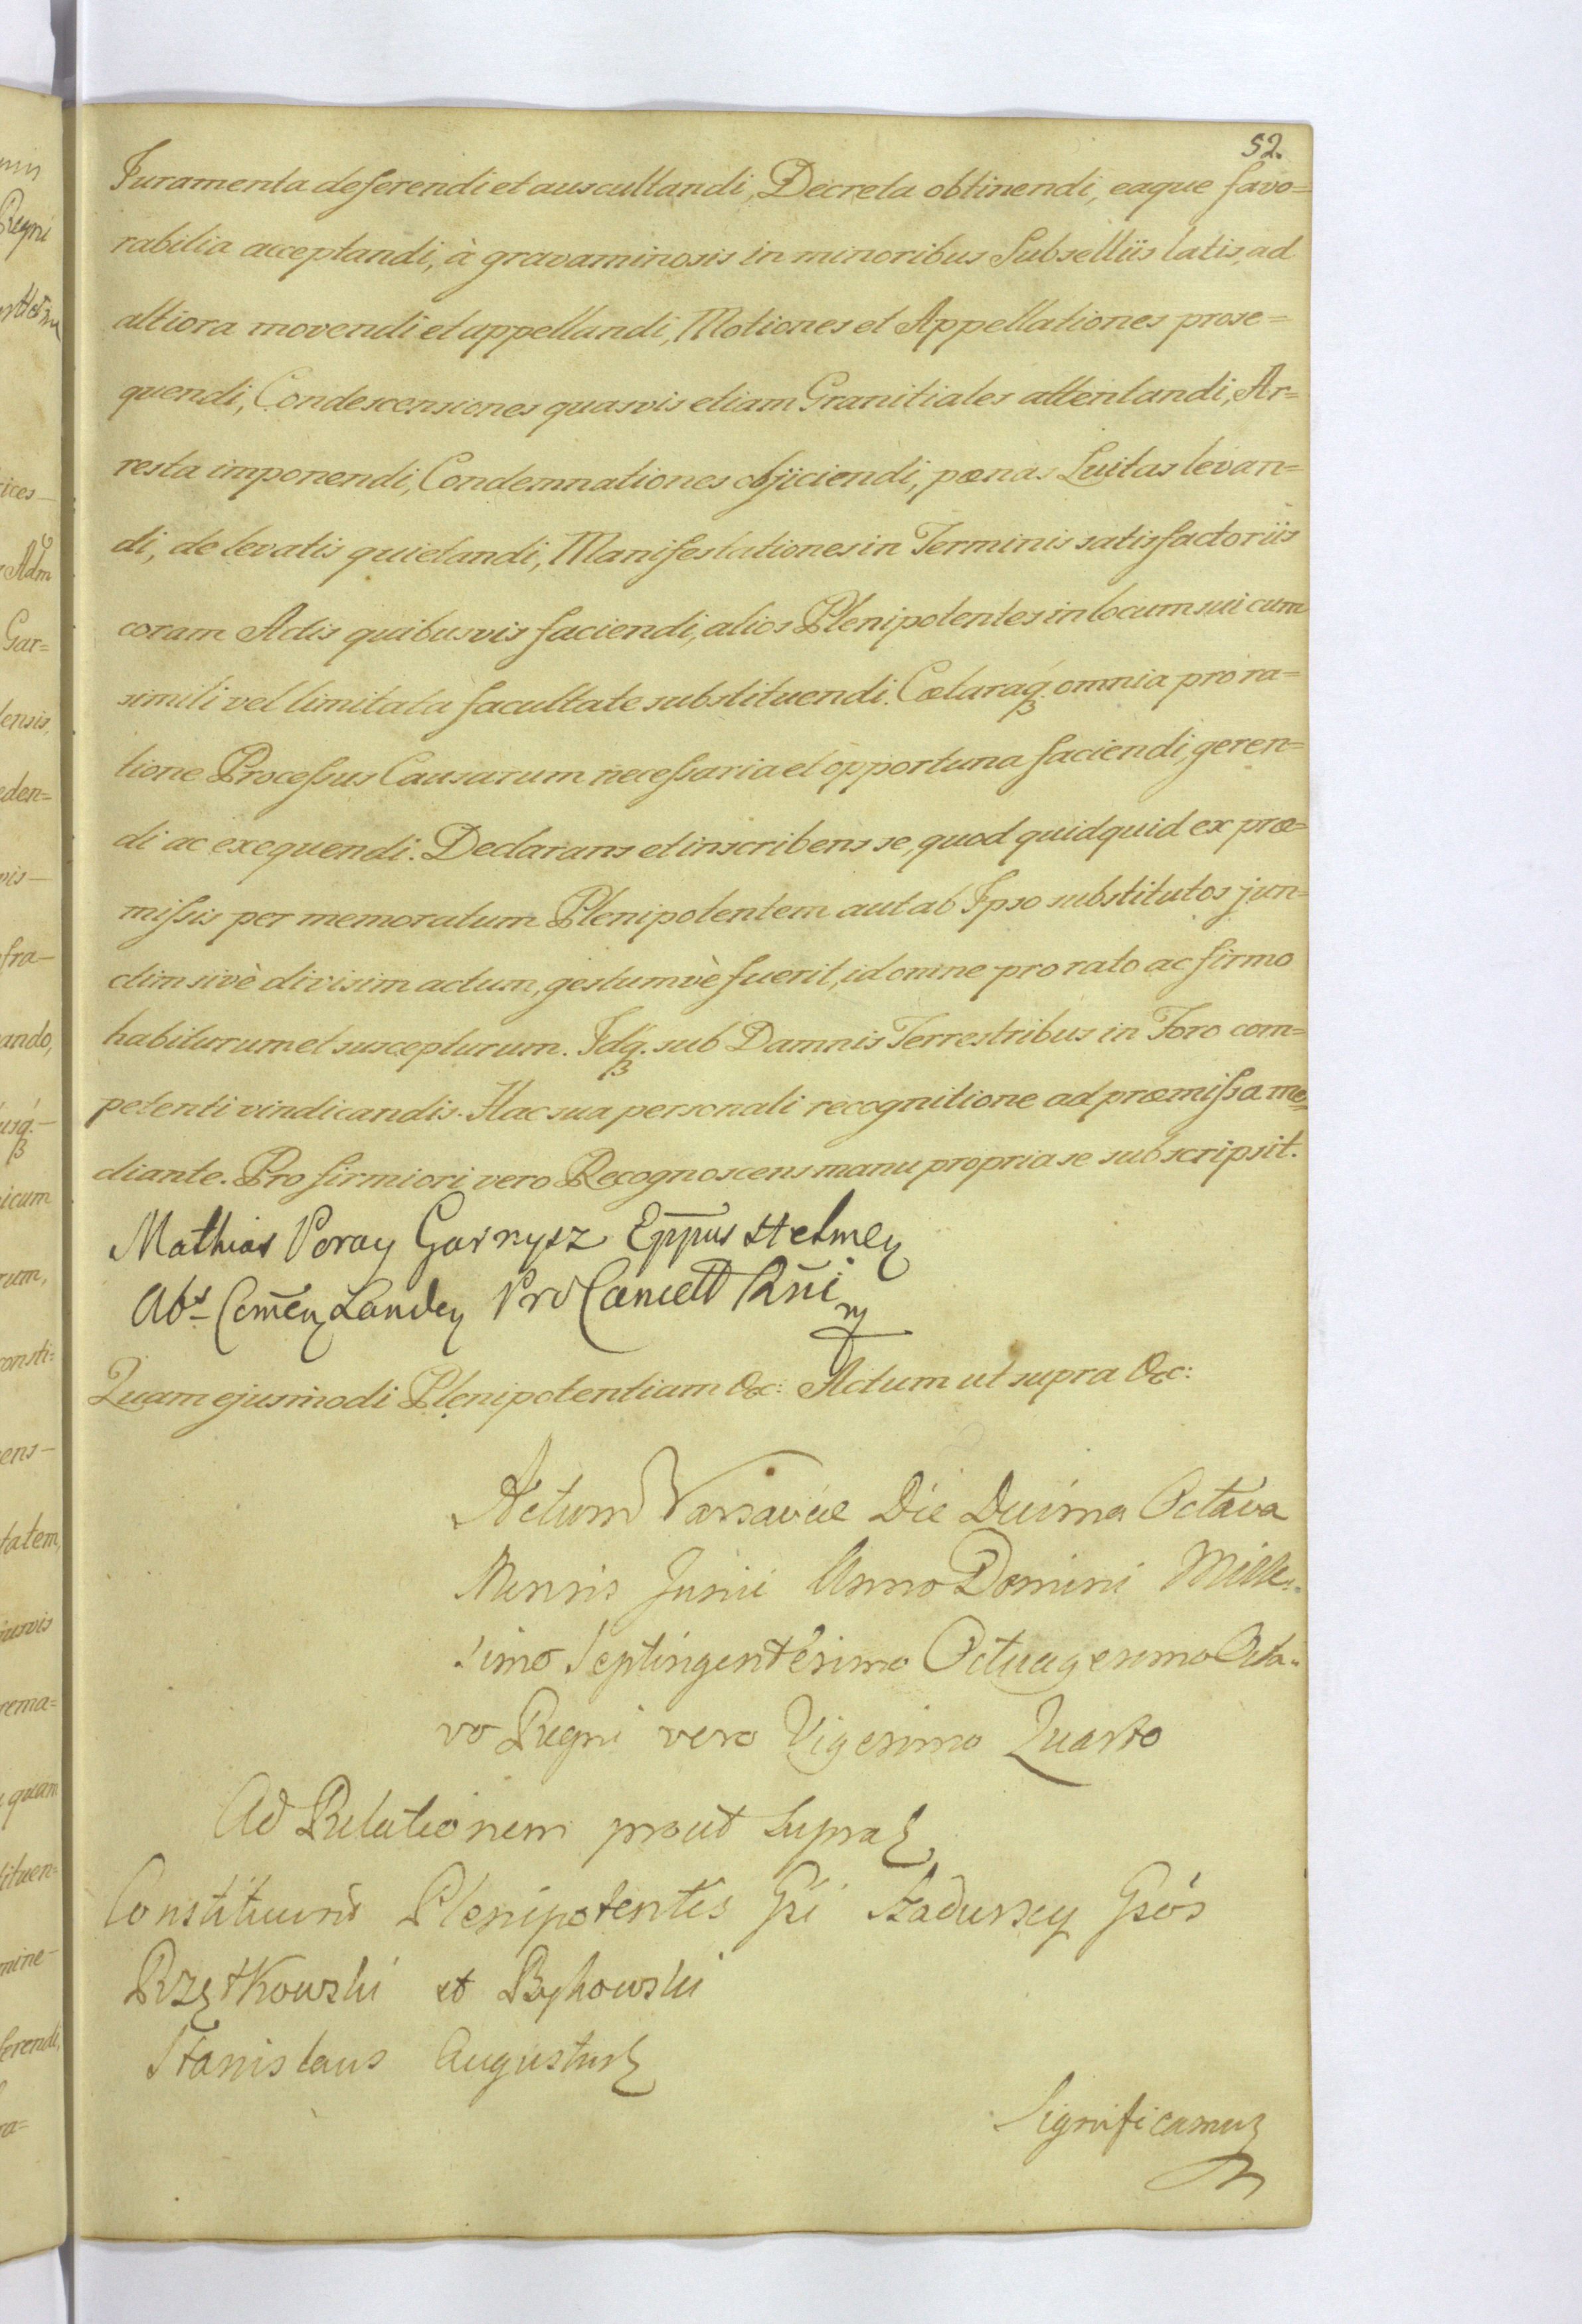 52.
Juramenta deferendi et auscultandi, Decreta obtinendi, eaque favo=
rabilia acceptandi, à gravaminosis in minoribus Subselliis latis, ad
altiora movendi et appellandi, Motiones et Appellationes prose=
quendi, Condescensiones quasvis etiam Granitiales attentandi, Ar=
resta imponendi, Condemnationes objiciendi, pœnas Luitas levan=
di, de levatis quietandi, Manifestationes in Terminis satisfactoriis
coram Actis quibusvis faciendi, alios Plenipotentes in locum sui cum
simili vel limitata facultate substituendi. Cœteraq₃ omnia pro ra=
tione Processus Causarum necessaria et opportuna faciendi, geren=
di ac exequendi. Declarans et inscribens se, quod quidquid ex præ=
missis per memoratum Plenipotentem aut ab Ipso substitutos jun=
ctim sivè divisim actum, gestumvè fuerit, id omne pro rato ac firmo
habiturum et suscepturum. Idq₃. sub Damnis Terrestribus in Foro com=
petenti vindicandis. Hac sua personali recognitione ad præmissa me=
diante. Pro firmiori vero Recognoscens manu propria se subscripsit.
Mathias Poray Garnysz Eppus Helmen
Abs Comen Landen Pro Cancell Rni
Quam ejusmodi Plenipotentiam &c: Actum ut supra &c:
Actum Varsaviæ Die Decima Octava
Mensis Junii Anno Domini Mille=
simo Septingentesimo Octuagesimo Octa=
vo Regni vero Vigesimo Quarto
Ad Relationem prout supra
Constituunt Plenipotentes Gsi Szadursky Gsós
Rzętkowski et Bykowski
Stanislaus Augustus
Significamus